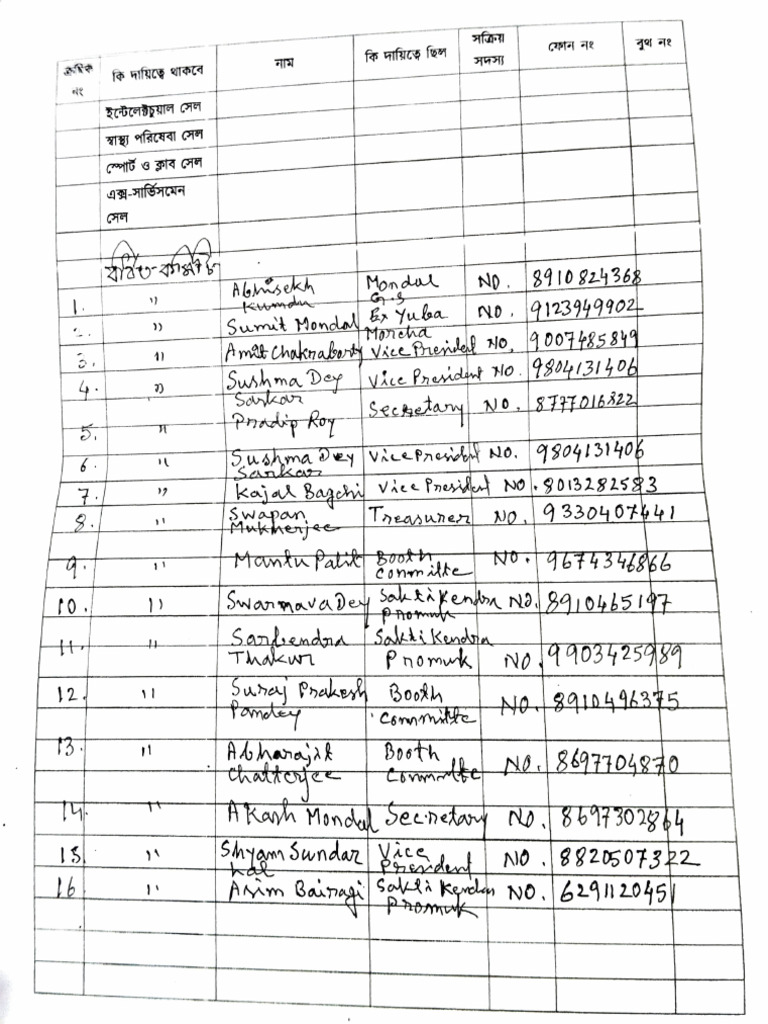 ক্রমিক নং কি দায়িত্বে থাকবে নাম কি দায়িত্বে ছিল সক্রিয় সদস্য ফোন নং বুথ নং
ইন্টেলেক্চুয়াল সেল
স্বাস্থ্য পরিষেবা সেল
স্পোর্ট ও ক্লাব সেল
এক্স-সার্ভিসমেন
সেল
বর্ধিত কমিটি
1. " Abhisekh Mondal NO. 8910824368
Kumdu G.S
2. " Sumit Mondal Ex Yuba NO. 9123949902
Morcha
3. " Amit Chakraborty Vice President NO. 9007485849
4. " Sushma Dey Vice President NO. 9804131406
Sarkar
5. " Pradip Roy Secretary NO. 8777016822
6. " Sushma Dey Vice President NO. 9804131406
Sarkar
7. " Kajal Bagchi Vice President NO. 8013282583
8. " Swapan Treasurer NO. 9330407441
Mukherjee
9. " Mantu Patit Booth NO. 9674346866
Committe
10. " Swarnava Dey Sakti Kendra NO. 8910465197
Promuk
11. " Sarbendra Sakti Kendra
Thakur Promuk NO. 9903425989
12. " Suraj Prakesh Booth NO. 8910496375
Pandey Committe
13. " Abharajit Booth NO. 8697704870
Chatterjee Committe
14. " Akash Mondal Secretary NO. 8697302864
15 " Shyam Sundar Vice NO. 8820507322
Kal President
16 " Asim Bairagi Sakti Kendra NO. 6291120451
Promuk